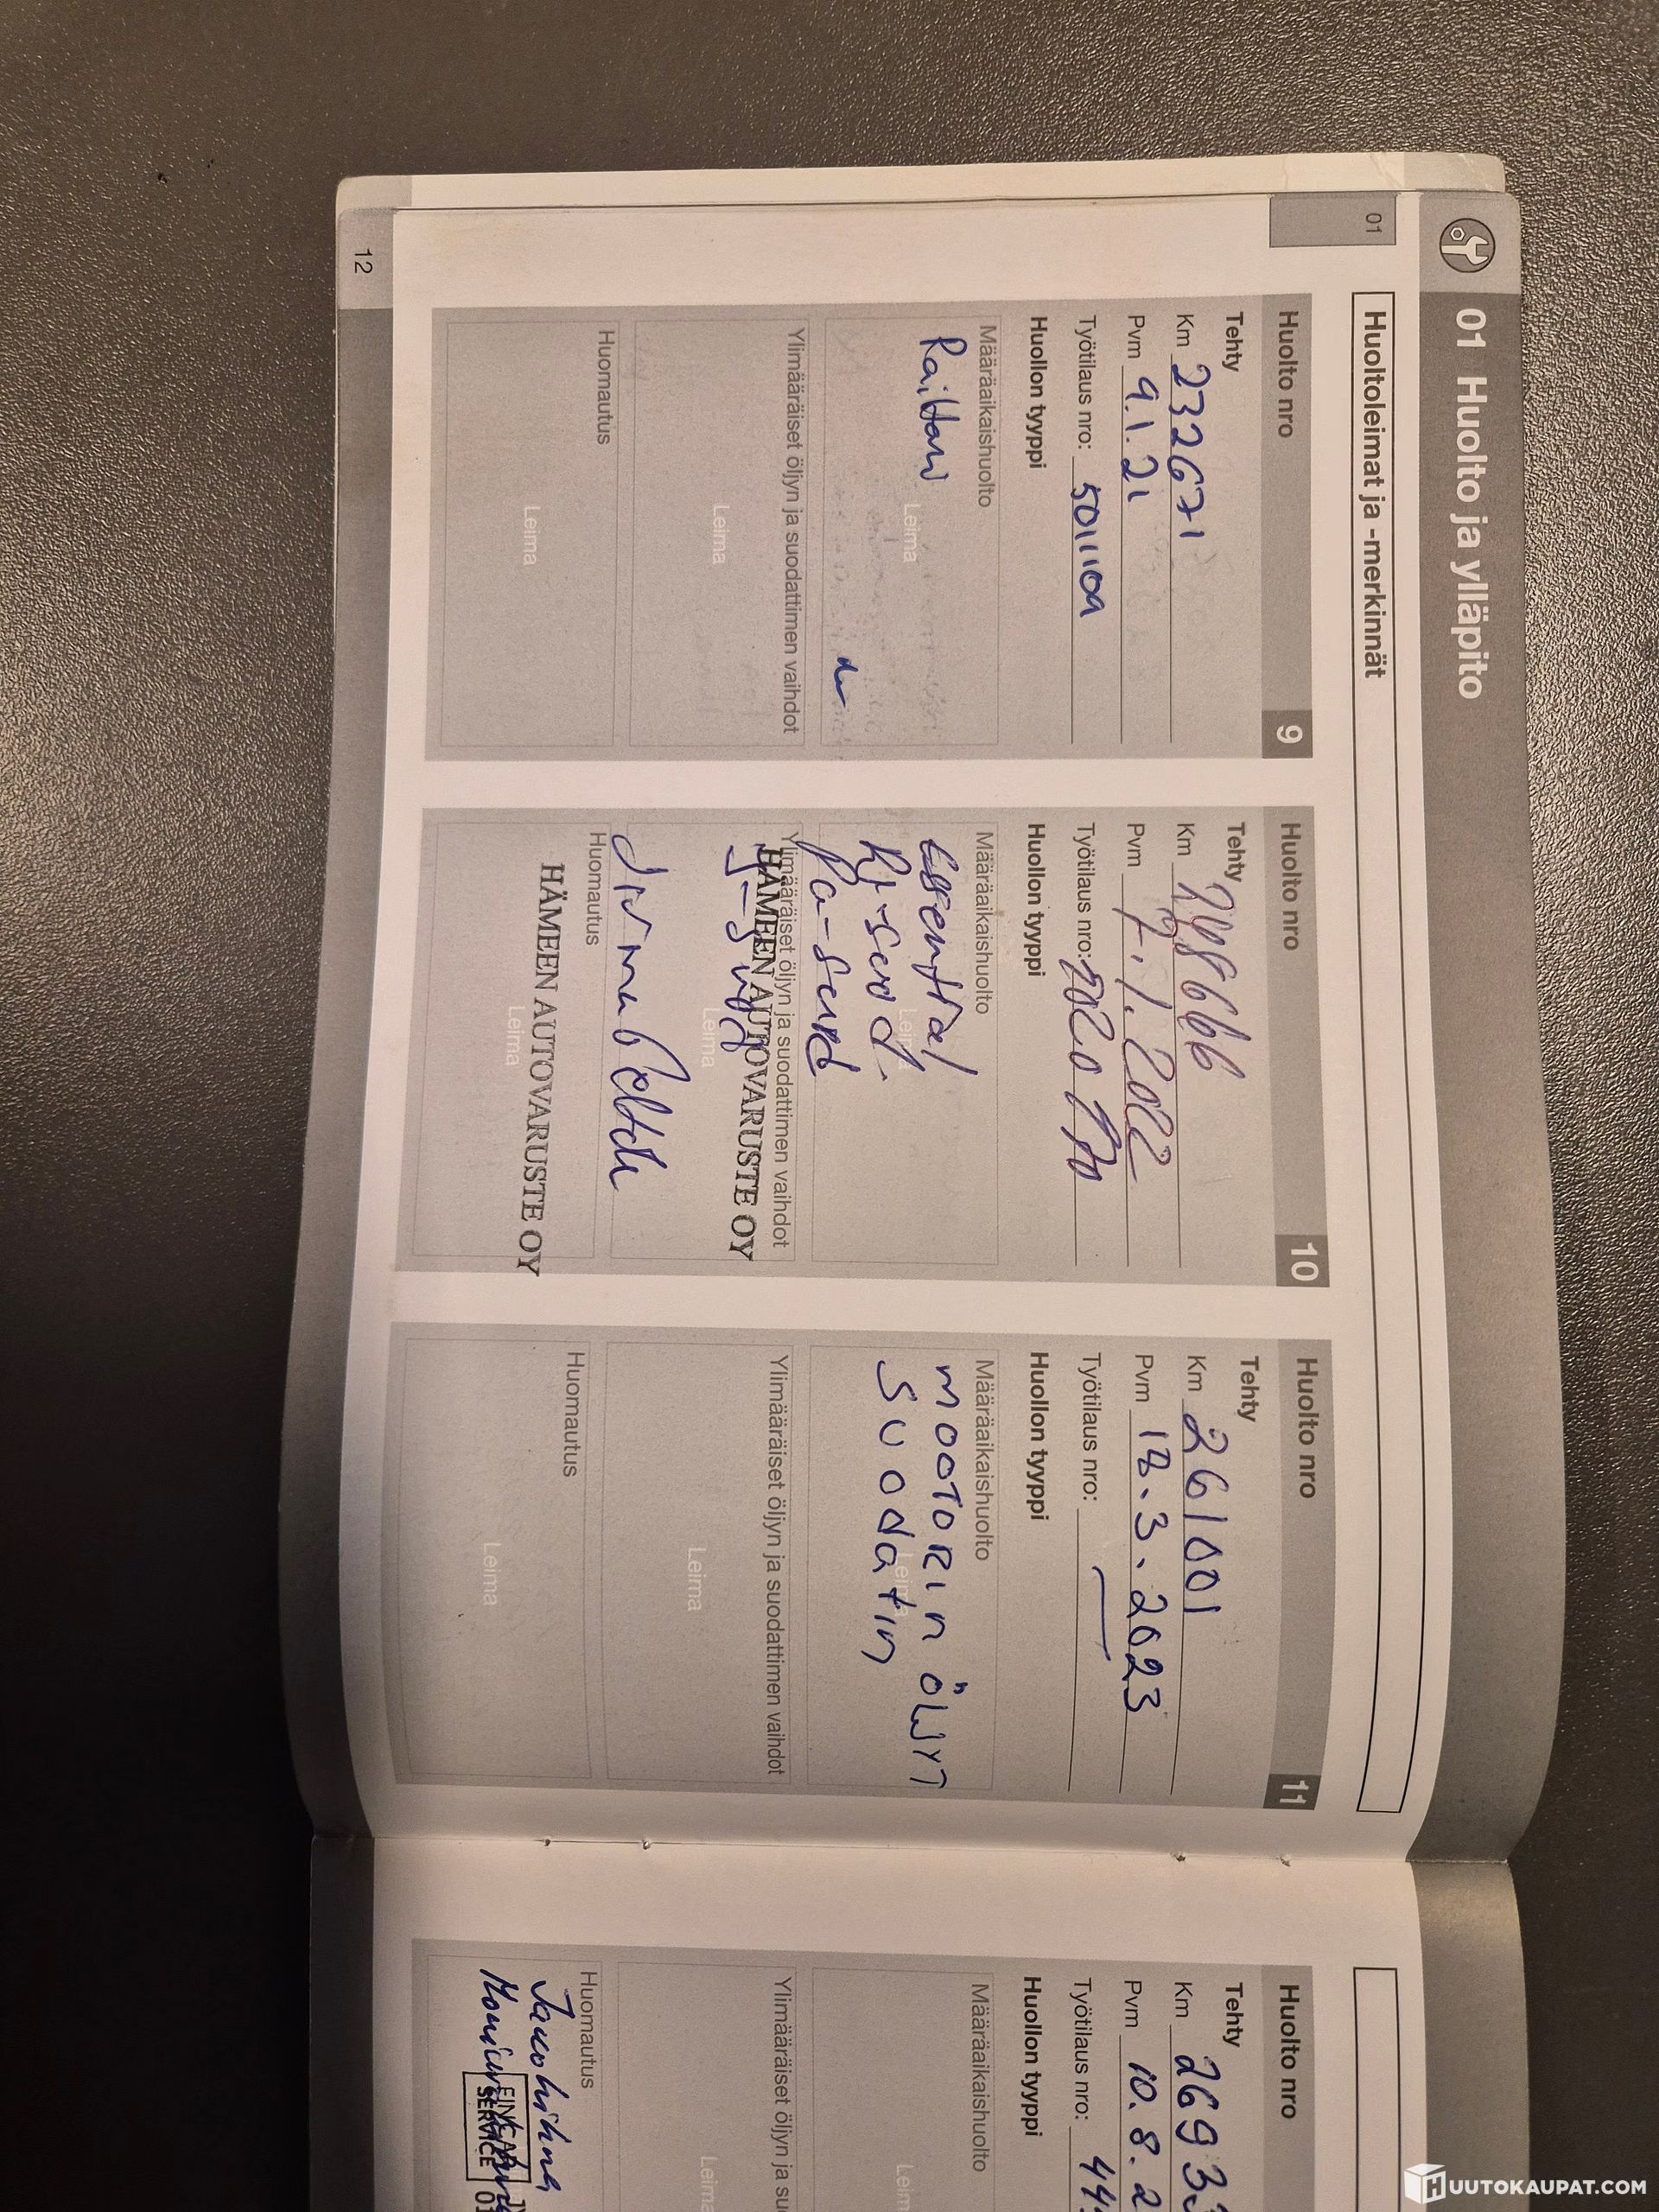 01 Huolto ja ylläpito
Huoltoleimat ja -merkinnät
01
Huolto nro 9
Tehty
Km 232671
Pvm 9.1.21
Työtilaus nro: 5011109
Huollon tyyppi
Määräaikaishuolto
Leima
Ylimääräiset öljyn ja suodattimen vaihdot
Leima
Huomautus
Leima
Huolto nro 10
Tehty
Km 248666
Pvm 7.1.2022
Työtilaus nro:
Huollon tyyppi
Määräaikaishuolto
Essential
Leima
Ylimääräiset öljyn ja suodattimen vaihdot
HÄMEEN AUTOVARUSTE OY
Leima
Huomautus
HÄMEEN AUTOVARUSTE OY
Leima
Huolto nro 11
Tehty
Km 261001
Pvm 18.3.2023
Työtilaus nro: —
Huollon tyyppi
Määräaikaishuolto
mOOTORin ÖLJYT
SUOdatin
Leima
Ylimääräiset öljyn ja suodattimen vaihdot
Leima
Huomautus
Leima
12
Huolto nro
Tehty
Km 2693
Pvm 10.8.2
Työtilaus nro: 44
Huollon tyyppi
Määräaikaishuolto
Leim
Ylimääräiset öljyn ja su
Leima
Huomautus
Jakohihna
SERVICE
HUUTOKAUPAT.COM